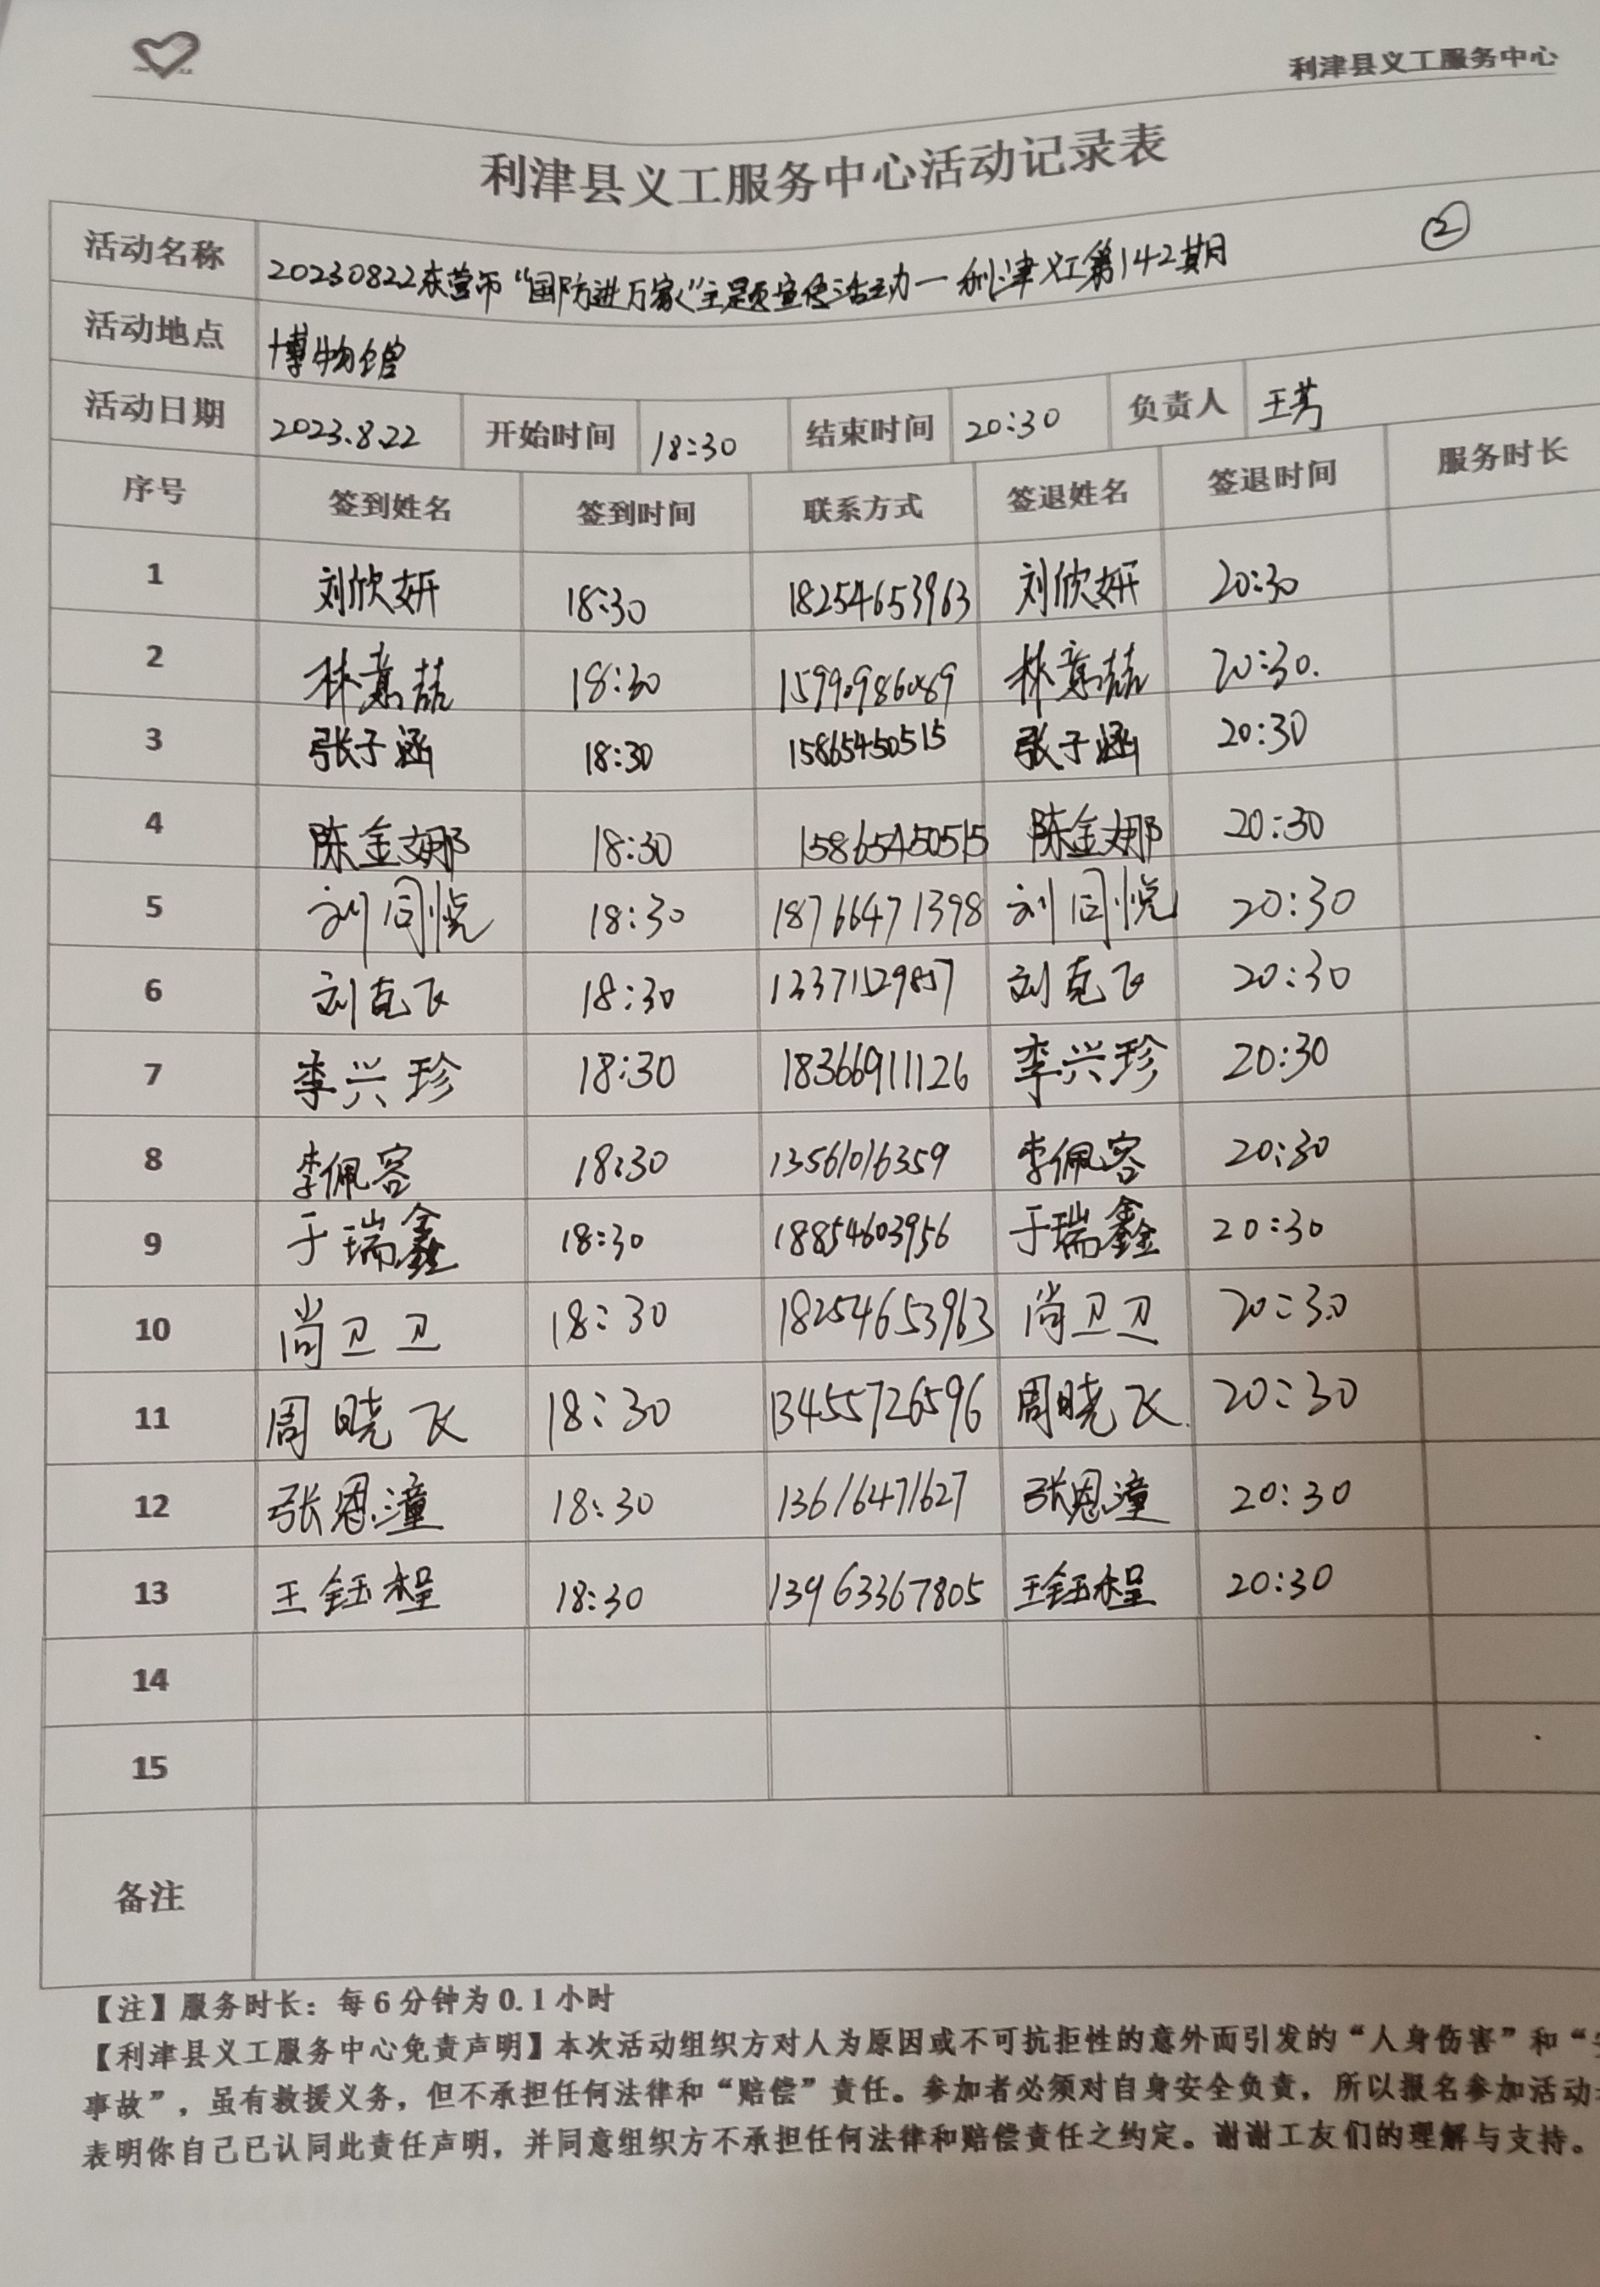 利津县义工服务中心
利津县义工服务中心活动记录表
②
活动名称 20230822东营市“国防进万家”主题宣传活动—利津义工第142期
活动地点 博物馆
活动日期 2023.8.22 开始时间 18:30 结束时间 20:30 负责人 王芳
序号 签到姓名 签到时间 联系方式 签退姓名 签退时间 服务时长
1 刘欣妍 18:30 18254653963 刘欣妍 20:30
2 林嘉喆 18:30 15990986089 林嘉喆 20:30.
3 张子涵 18:30 15865450515 张子涵 20:30
4 陈金娜 18:30 15865450515 陈金娜 20:30
5 刘同悦 18:30 18766471398 刘同悦 20:30
6 刘克飞 18:30 刘克飞 20:30
7 李兴珍 18:30 18366911126 李兴珍 20:30
8 李佩容 18:30 13561016359 李佩容 20:30
9 于瑞鑫 18:30 18854603956 于瑞鑫 20:30
10 尚卫卫 18:30 18254653963 尚卫卫 20:30
11 周晓飞 18:30 13455726596 周晓飞 20:30
12 张恩潼 18:30 13616471627 张恩潼 20:30
13 王钰桯 18:30 13963367805 王钰桯 20:30
14
15
备注
【注】服务时长：每6分钟为0.1小时
【利津县义工服务中心免责声明】本次活动组织方对人为原因或不可抗拒性的意外而引发的“人身伤害”和“
事故”，虽有救援义务，但不承担任何法律和“赔偿”责任。参加者必须对自身安全负责，所以报名参加活动
表明你自己已认同此责任声明，并同意组织方不承担任何法律和赔偿责任之约定。谢谢工友们的理解与支持。